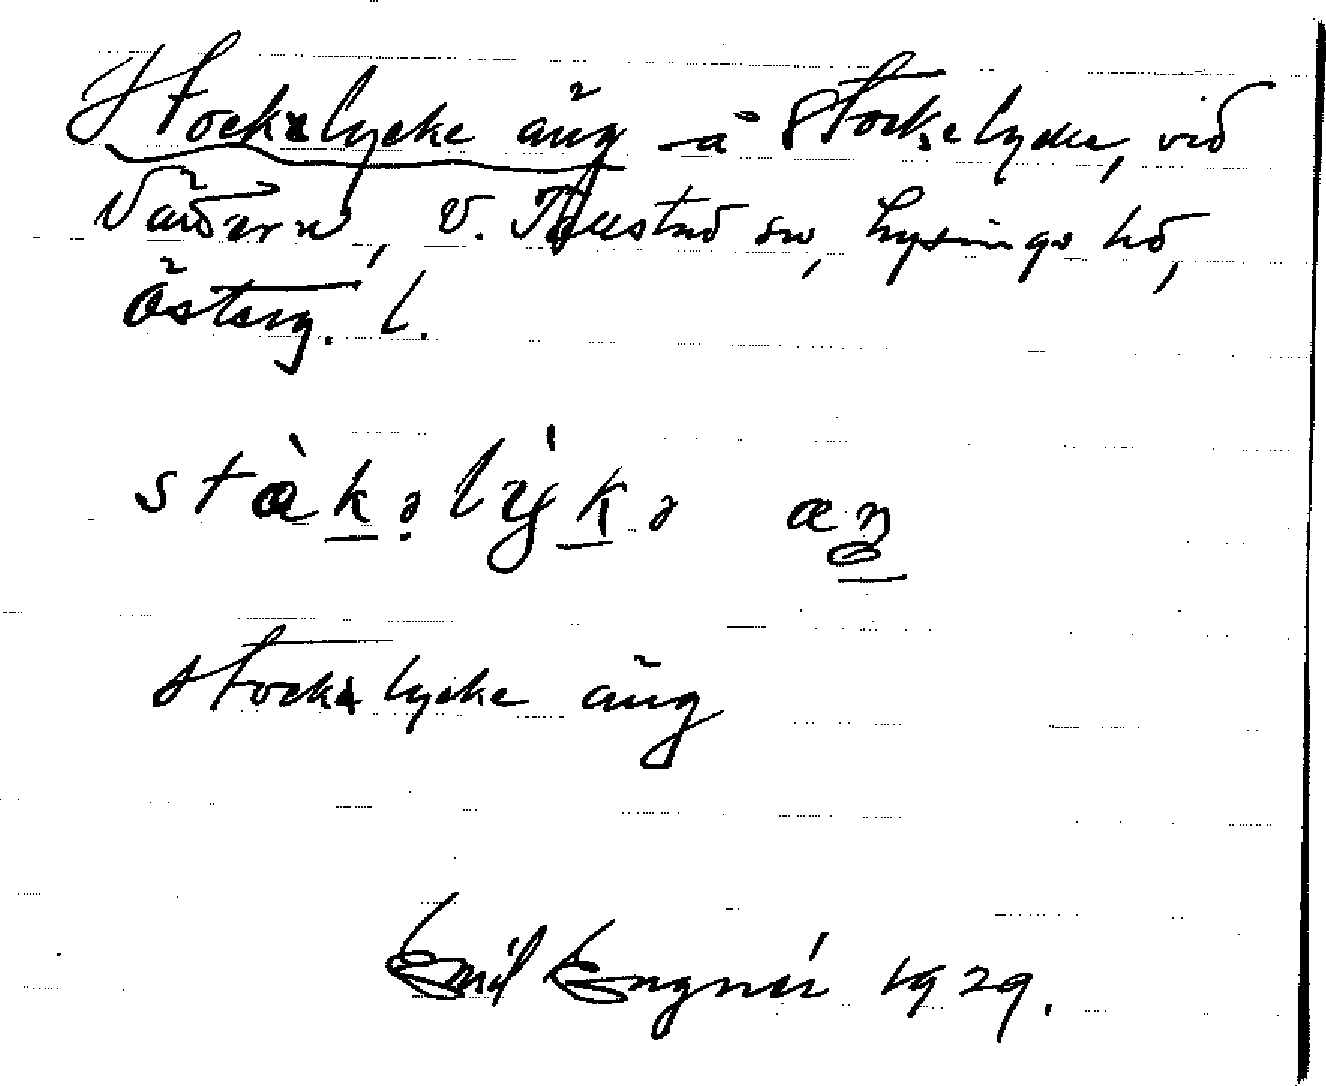 Stockelycke äng på Stockelycke, vid
Vättern, V. Tollstad sn, Lysings hd,
Österg. l.
stàkəlýkə æŋ
Stockelycke äng
Emil Engnér 1929.